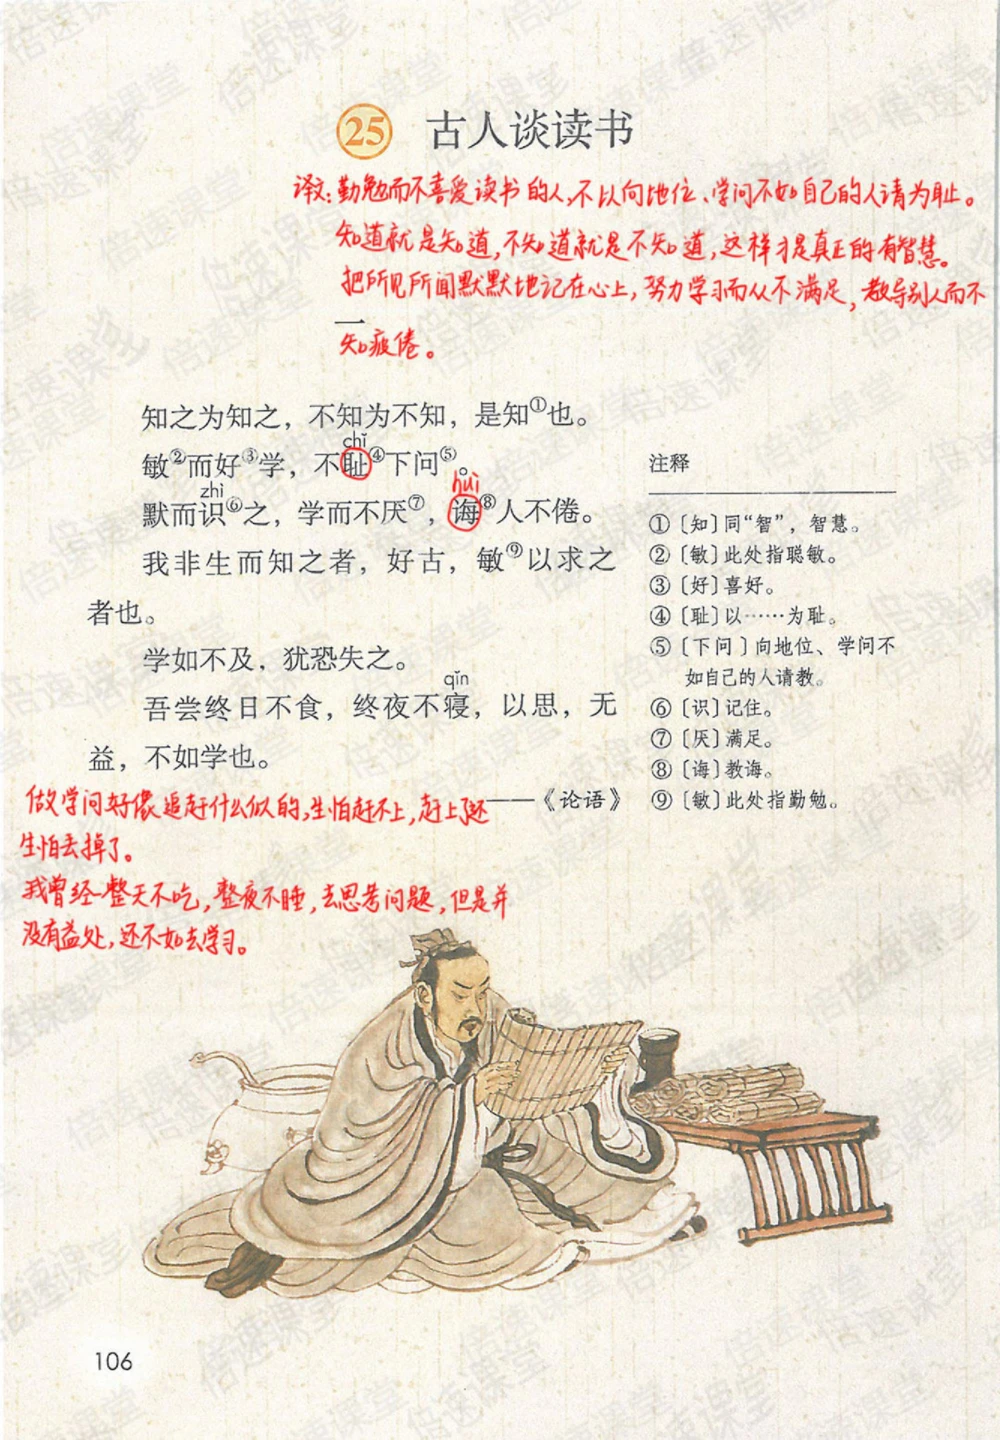 25 古人谈读书
译文:勤勉而不喜爱读书的人,不以向地位、学问不如自己的人请为耻。
知道就是知道,不知道就是不知道,这样才是真正的有智慧。
把所见所闻默默地记在心上,努力学习而从不满足,教导别人而不
一
知疲倦。
知之为知之,不知为不知,是知①也。
chǐ
敏②而好③学,不耻④下问⑤。
zhì huì
默而识⑥之,学而不厌⑦,诲⑧人不倦。
我非生而知之者,好古,敏⑨以求之
者也。
学如不及,犹恐失之。
qǐn
吾尝终日不食,终夜不寝,以思,无
益,不如学也。
——《论语》
注释
①〔知〕同“智”,智慧。
②〔敏〕此处指聪敏。
③〔好〕喜好。
④〔耻〕以……为耻。
⑤〔下问〕向地位、学问不
如自己的人请教。
⑥〔识〕记住。
⑦〔厌〕满足。
⑧〔诲〕教诲。
⑨〔敏〕此处指勤勉。
做学问好像追赶什么似的,生怕赶不上,赶上了还
生怕丢掉了。
我曾经一整天不吃,整夜不睡,去思考问题,但是并
没有益处,还不如去学习。
106
倍速课堂